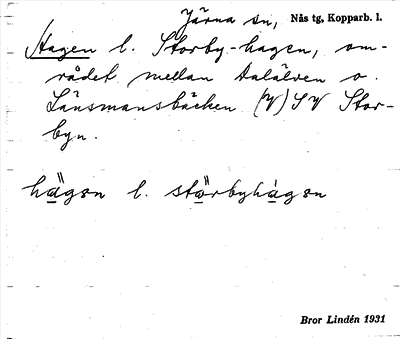 Järna sn, Nås tg, Kopparb. l.
Hagen l. Storby-hagen, om-
rådet mellan Dalälven o.
Länsmansbäcken (V) SV Stor-
byn.
hägən l. störbyhàgən
Bror Lindén 1931